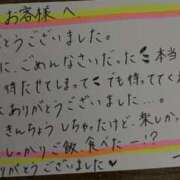 お客様へ
とうございました。
に、ごめんなさいだった 本当
待たせてしまって でも待っててくれ
ありがとうございました…。
きんちょうしちゃったけど、楽しか
しっかりご飯食べたー!?
がとうございました♡